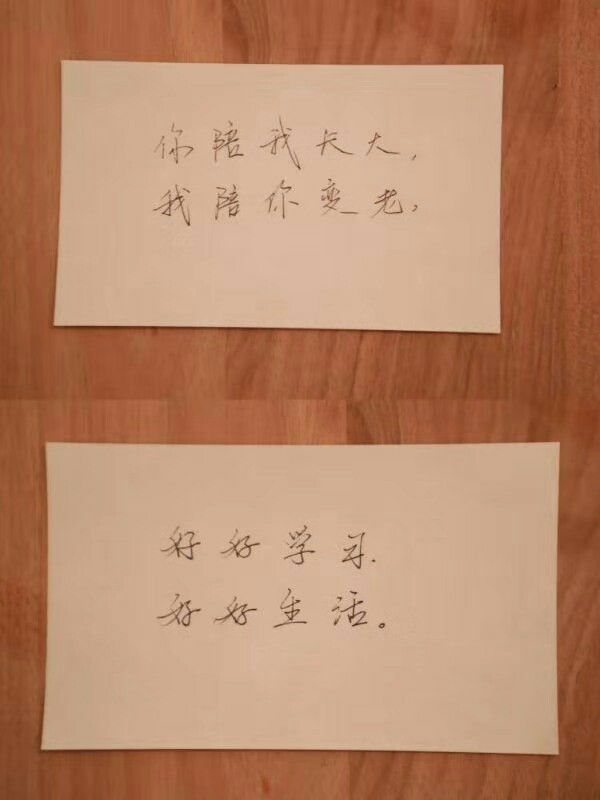 你陪我长大,
我陪你变老,
好好学习.
好好生活。